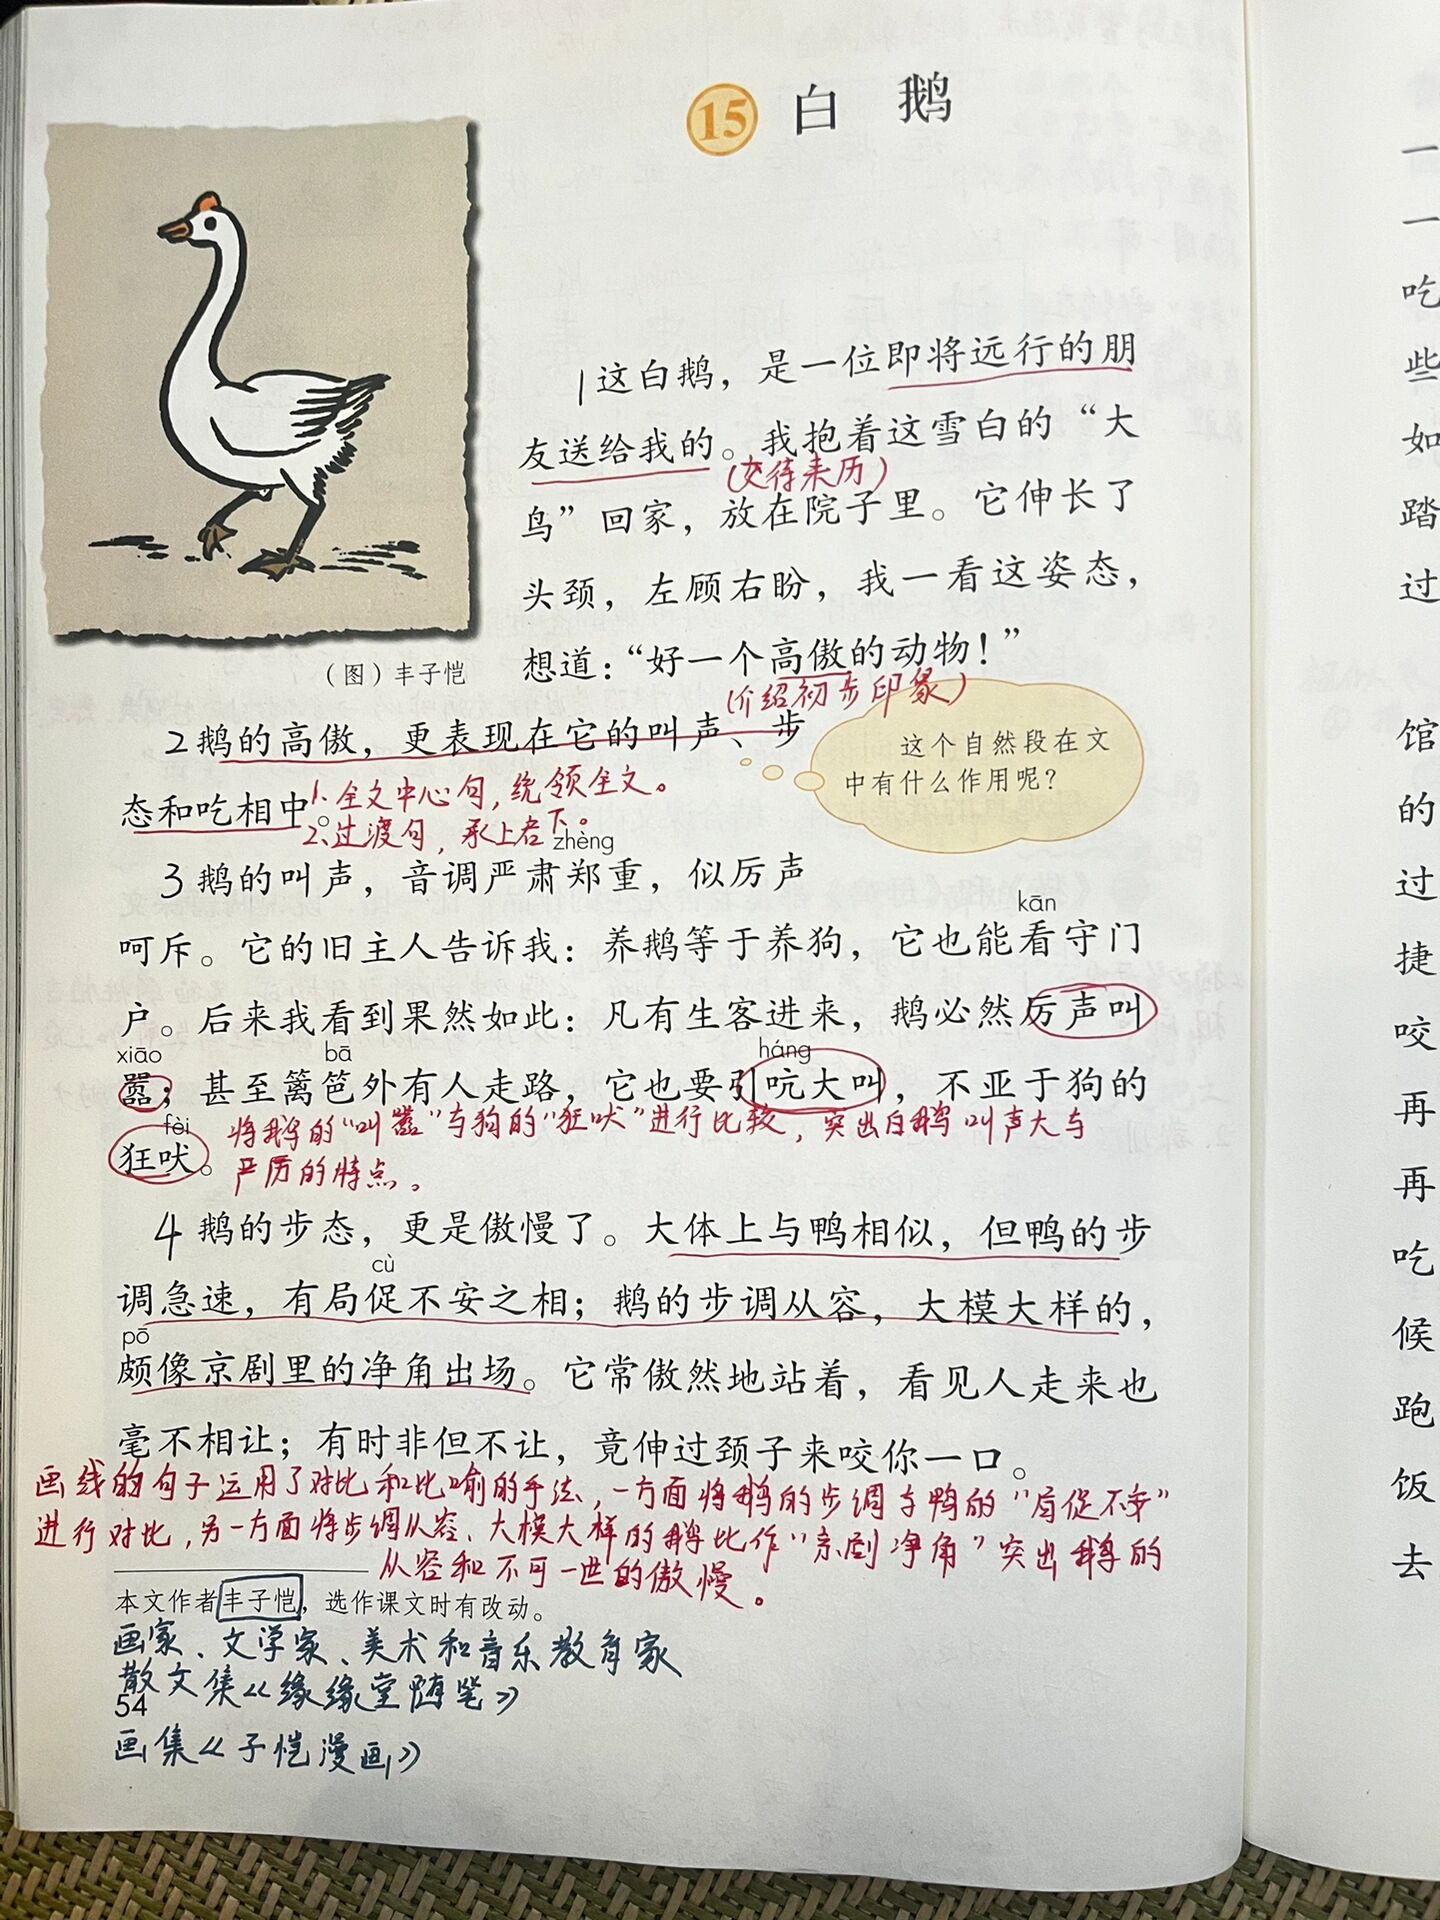 15 白 鹅
1这白鹅，是一位即将远行的朋
友送给我的。我抱着这雪白的“大
(交待来历)
鸟”回家，放在院子里。它伸长了
头颈，左顾右盼，我一看这姿态，
想道：“好一个高傲的动物！”
(介绍初步印象)
（图）丰子恺
2鹅的高傲，更表现在它的叫声、步
态和吃相中。
1、全文中心句，统领全文。
2、过渡句，承上启下。
这个自然段在文
中有什么作用呢？
zhèng
3鹅的叫声，音调严肃郑重，似厉声
kān
呵斥。它的旧主人告诉我：养鹅等于养狗，它也能看守门
户。后来我看到果然如此：凡有生客进来，鹅必然厉声叫
xiāo bā háng
嚣；甚至篱笆外有人走路，它也要引吭大叫，不亚于狗的
fèi
狂吠。
将鹅的“叫嚣”与狗的“狂吠”进行比较，突出白鹅叫声大与
严厉的特点。
4鹅的步态，更是傲慢了。大体上与鸭相似，但鸭的步
cù
调急速，有局促不安之相；鹅的步调从容，大模大样的，
pō
颇像京剧里的净角出场。它常傲然地站着，看见人走来也
毫不相让；有时非但不让，竟伸过颈子来咬你一口。
画线的句子运用了对比和比喻的手法，一方面将鹅的步调与鸭的“局促不安”
进行对比，另一方面将步调从容、大模大样的鹅比作“京剧净角”突出鹅的
从容和不可一世的傲慢。
本文作者丰子恺，选作课文时有改动。
画家、文学家、美术和音乐教育家
散文集《缘缘堂随笔》
54
画集《子恺漫画》
一
一
吃
些
如
踏
过
馆
的
过
捷
咬
再
再
吃
候
跑
饭
去